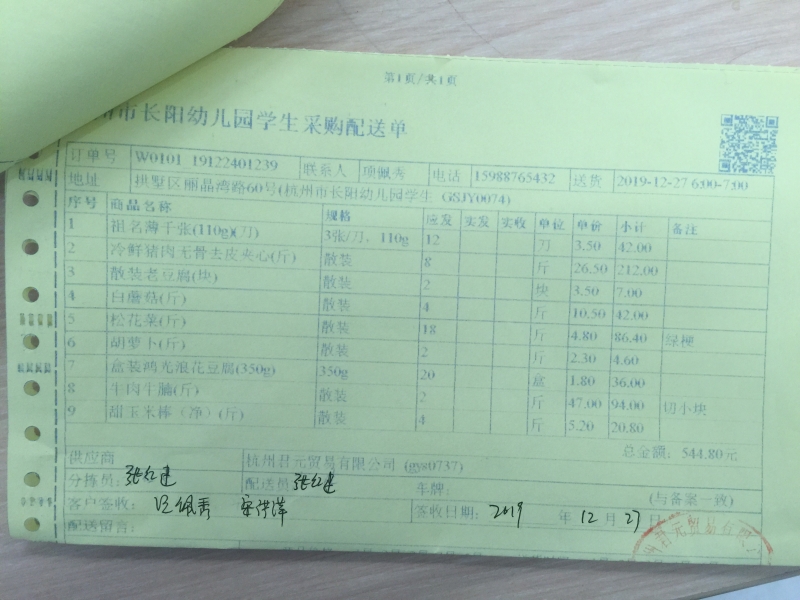 第1页/共1页
州市长阳幼儿园学生采购配送单
订单号 W0101_19122401239 联系人 项佩秀 电话 15988765432 送货 2019-12-27 6:00-7:00
地址 拱墅区丽晶湾路60号(杭州市长阳幼儿园学生 GSJY0074)
序号 商品名称 规格 应发 实发 实收 单位 单价 小计 备注
1 祖名薄千张(110g)(刀) 3张/刀, 110g 12 刀 3.50 42.00
2 冷鲜猪肉无骨去皮夹心(斤) 散装 8 斤 26.50 212.00
3 散装老豆腐(块) 散装 2 块 3.50 7.00
4 白蘑菇(斤) 散装 4 斤 10.50 42.00
5 松花菜(斤) 散装 18 斤 4.80 86.40 绿梗
6 胡萝卜(斤) 散装 2 斤 2.30 4.60
7 盒装鸿光浪花豆腐(350g) 350g 20 盒 1.80 36.00
8 牛肉牛腩(斤) 散装 2 斤 47.00 94.00 切小块
9 甜玉米棒（净）(斤) 散装 4 斤 5.20 20.80
总金额: 544.80元
供应商 杭州君元贸易有限公司 (gys0737)
分拣员: 张红建 配送员 张红建 车牌: (与备案一致)
客户签收: 项佩秀 签收日期: 2019 年 12 月 27 日
配送留言:
君元贸易有限